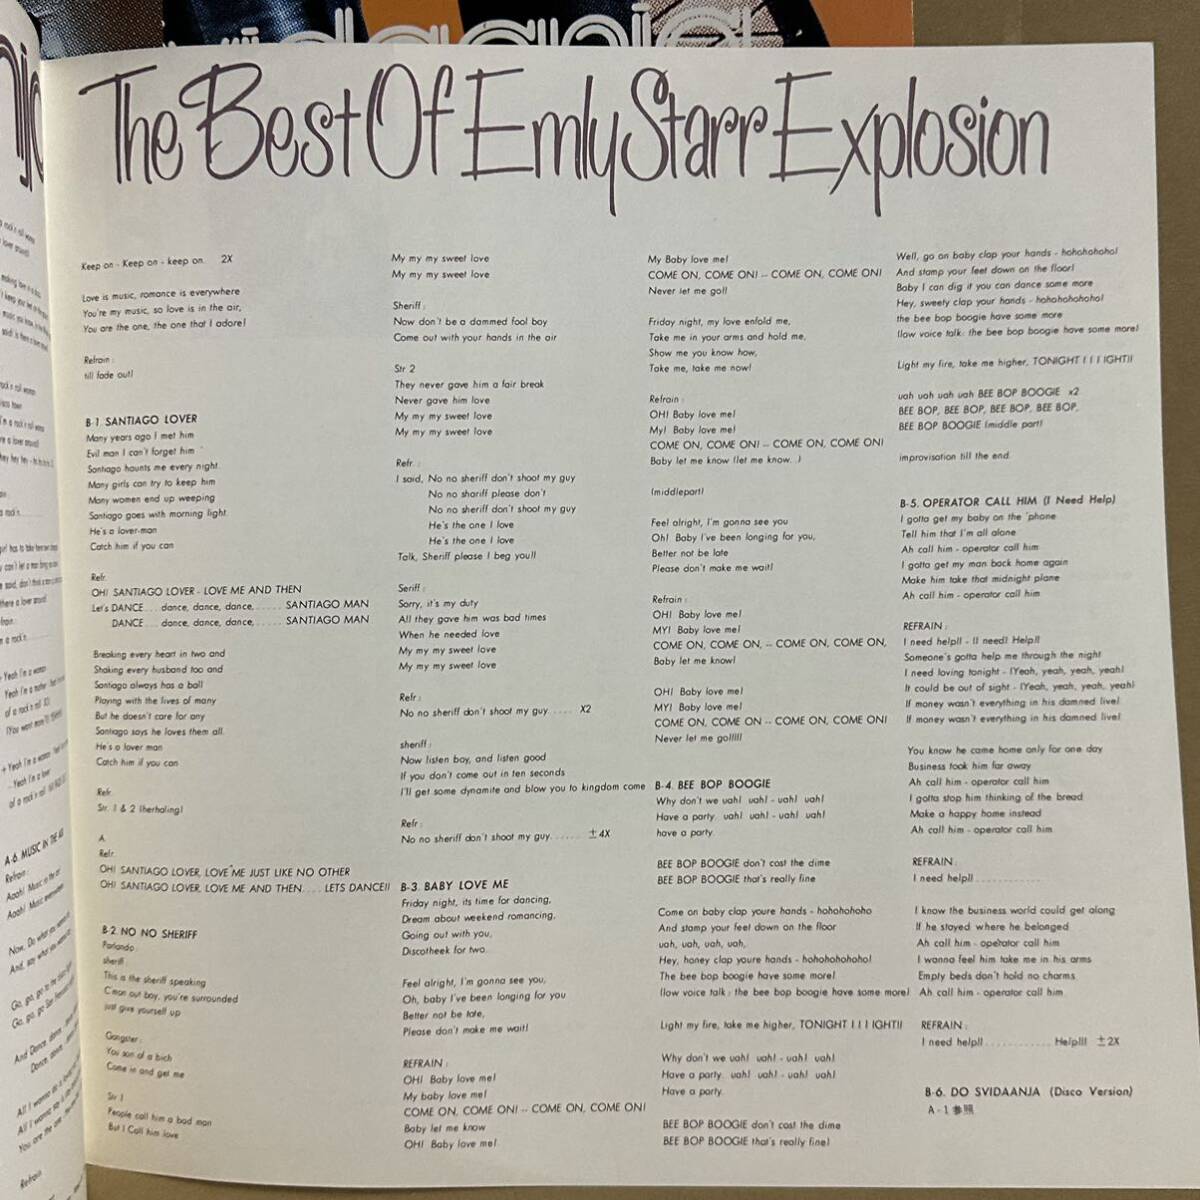 The Best Of Emly Starr Explosion
Keep on - Keep on - keep on. 2X
Love is music, romance is everywhere
You're my music, so love is in the air,
You are the one, the one that I adore!
Refrain :
till fade out!
B-1. SANTIAGO LOVER
Many years ago I met him
Evil man I can't forget him
Santiago haunts me every night.
Many girls can try to keep him
Many women end up weeping
Santiago goes with morning light.
He's a lover-man
Catch him if you can
Refr.
OH! SANTIAGO LOVER - LOVE ME AND THEN
Let's DANCE... dance, dance, dance,...... SANTIAGO MAN
DANCE... dance, dance, dance,...... SANTIAGO MAN
Breaking every heart in two and
Shaking every husband too and
Santiago always has a ball
Playing with the lives of many
But he doesn't care for any
Santiago says he loves them all.
He's a lover man
Catch him if you can
Refr.
Str. 1 & 2 (herhaling)
A.
Refr.
OH! SANTIAGO LOVER, LOVE ME JUST LIKE NO OTHER
OH! SANTIAGO LOVER, LOVE ME AND THEN.... LETS DANCE!!
B-2. NO NO SHERIFF
Parlando :
sheriff :
This is the sheriff speaking
C'mon out boy, you're surrounded
just give yourself up
Gangster :
You son of a bich
Come in and get me
Str 1
People call him a bad man
But I Call him love
My my my sweet love
My my my sweet love
Sheriff :
Now don't be a dammed fool boy
Come out with your hands in the air
Str 2
They never gave him a fair break
Never gave him love
My my my sweet love
My my my sweet love
Refr. :
I said, No no sheriff don't shoot my guy
No no shariff please don't
No no sheriff don't shoot my guy
He's the one I love
He's the one I love
Talk, Sheriff please I beg you!!
Seriff :
Sorry, it's my duty
All they gave him was bad times
When he needed love
My my my sweet love
My my my sweet love
Refr :
No no sheriff don't shoot my guy..... X2
sheriff :
Now listen boy, and listen good
If you don't come out in ten seconds
I'll get some dynamite and blow you to kingdom come
Refr :
No no sheriff don't shoot my guy....... ±4X
B-3. BABY LOVE ME
Friday night, its time for dancing,
Dream about weekend romancing,
Going out with you,
Discotheek for two.
Feel alright, I'm gonna see you,
Oh, baby I've been longing for you
Better not be late,
Please don't make me wait!
REFRAIN :
OH! Baby love me!
My baby love me!
COME ON, COME ON! -- COME ON, COME ON!
Baby let me know
OH! Baby love me!
My Baby love me!
COME ON, COME ON! -- COME ON, COME ON!
Never let me go!!
Friday night, my love enfold me,
Take me in your arms and hold me,
Show me you know how,
Take me, take me now!
Refrain :
OH! Baby love me!
My! Baby love me!
COME ON, COME ON! -- COME ON, COME ON!
Baby let me know (let me know..)
(middlepart)
Feel alright, I'm gonna see you
Oh! Baby I've been longing for you,
Better not be late
Please don't make me wait!
Refrain :
OH! Baby love me!
MY! Baby love me!
COME ON, COME ON, -- COME ON, COME ON,
Baby let me know!
OH! Baby love me!
MY! Baby love me!
COME ON, COME ON -- COME ON, COME ON!
Never let me go!!!!!
B-4. BEE BOP BOOGIE
Why don't we uah! uah! - uah! uah!
Have a party. uah! uah! - uah! uah!
have a party.
BEE BOP BOOGIE don't cost the dime
BEE BOP BOOGIE that's really fine
Come on baby clap youre hands - hohohohoho
And stamp your feet down on the floor
uah, uah, uah, uah,
Hey, honey clap youre hands - hohohohoho!
The bee bop boogie have some more!
(low voice talk : the bee bop boogie have some more)
Light my fire, take me higher, TONIGHT I I I IGHT!!
Why don't we uah! uah! - uah! uah!
Have a party. uah! uah! - uah! uah!
Have a party.
BEE BOP BOOGIE don't cost the dime
BEE BOP BOOGIE that's really fine!
Well, go on baby clap your hands - hohohohoho!
And stamp your feet down on the floor!
Baby I can dig it you can dance some more
Hey, sweety clap your hands - hohohohoho!
the bee bop boogie have some more
(low voice talk: the bee bop boogie have some more)
Light my fire, take me higher, TONIGHT I I I IGHT!!
uah uah uah uah BEE BOP BOOGIE x2
BEE BOP, BEE BOP, BEE BOP, BEE BOP,
BEE BOP BOOGIE (middle part)
improvisation till the end.
B-5. OPERATOR CALL HIM (I Need Help)
I gotta get my baby on the 'phone
Tell him that I'm all alone
Ah call him - operator call him
I gotta get my man back home again
Make him take that midnight plane
Ah call him - operator call him
REFRAIN :
I need help!! - (I need! Help!!
Someone's gotta help me through the night
I need loving tonight - (Yeah, yeah, yeah, yeah)
It could be out of sight - (Yeah, yeah, yeah, yeah)
If money wasn't everything in his damned live!
If money wasn't everything in his damned live!
You know he came home only for one day
Business took him far away
Ah call him - operator call him
I gotta stop him thinking of the bread
Make a happy home instead
Ah call him - operator call him
REFRAIN :
I need help!! ..............
I know the business world could get along
If he stayed where he belonged
Ah call him - operator call him
I wanna feel him take me in his arms
Empty beds don't hold no charms
Ah call him - operator call him
REFRAIN :
I need help!! .............. Help!!! ±2X
B-6. DO SVIDAANJA (Disco Version)
A-1参照
A-6. MUSIC IN THE
Refrain :